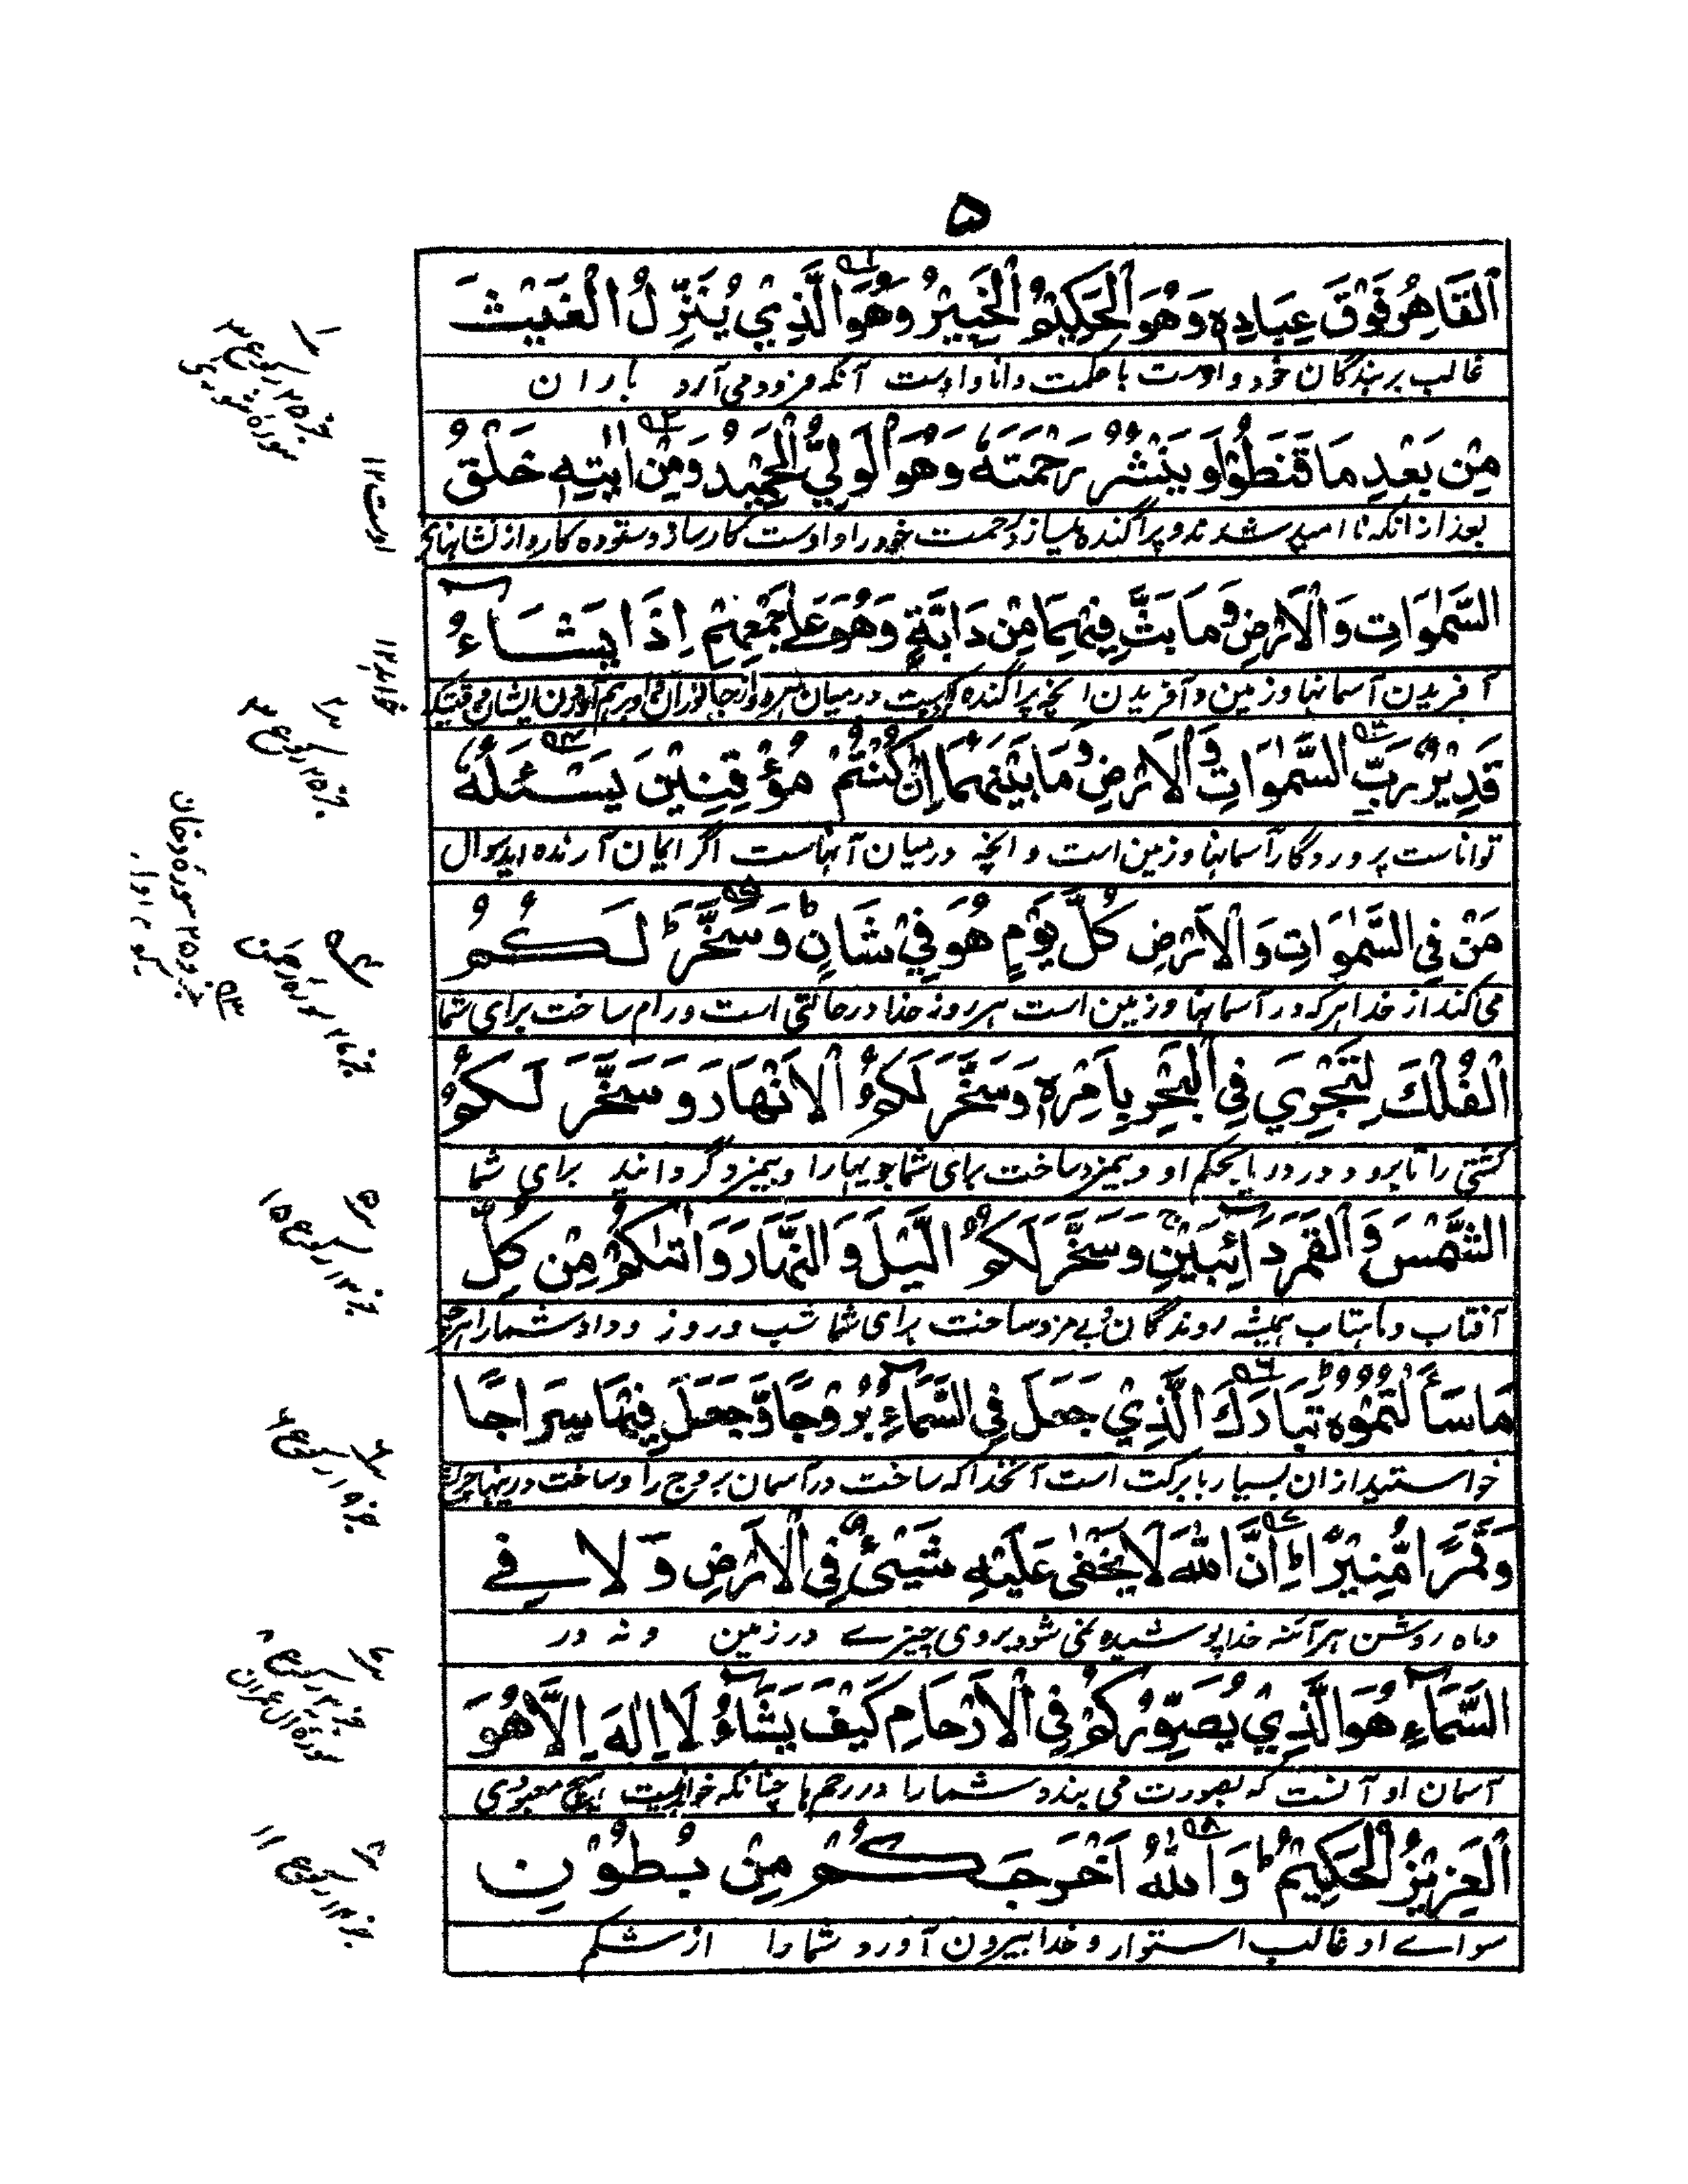 ۵
اَلْقَاهِرُ فَوْقَ عِبَادِهٖ وَهُوَ الْحَكِيْمُ الْخَبِيْرُ وَهُوَ الَّذِيْ يُنَزِّلُ الْغَيْثَ
غالب بر بندگان خود و اوست با حکمت و دانا و اوست آنکه فرود می آرد باران
مِنْ بَعْدِ مَا قَنَطُوْا وَيَنْشُرُ رَحْمَتَهٗ وَهُوَ الْوَلِيُّ الْحَمِيْدُ وَمِنْ اٰيٰتِهٖ خَلْقُ
بعد از انکه نا امید شدند و پراگنده میسازد رحمت خود را و اوست کارساز و ستوده کار و از نشانهای
السَّمٰوَاتِ وَالْاَرْضِ وَمَا بَثَّ فِيْهِمَا مِنْ دَابَّةٍ وَهُوَ عَلٰى جَمْعِهِمْ اِذَا يَشَاءُ
آفریدن آسمانها و زمین و آفریدن انچه پراگنده کرده است در میان هر دو از جانوران و او بر بهم آوردن ایشان وقتیکه
قَدِيْرٌ رَبِّ السَّمٰوَاتِ وَالْاَرْضِ وَمَا بَيْنَهُمَا اِنْ كُنْتُمْ مُؤْقِنِيْنَ يَسْئَلُهٗ
تواناست پروردگار آسمانها و زمین است و انچه درمیان آنهاست اگر ایمان آرنده اید سوال
مَنْ فِي السَّمٰوَاتِ وَالْاَرْضِ كُلَّ يَوْمٍ هُوَ فِيْ شَانٍ وَسَخَّرَ لَكُمُ
می کند از خدا هر که در آسمانها و زمین است هر روز خدا در حالتی است و رام ساخت برای شما
الْفُلْكَ لِتَجْرِيَ فِي الْبَحْرِ بِاَمْرِهٖ وَسَخَّرَ لَكُمُ الْاَنْهَارَ وَ سَخَّرَ لَكُمُ
کشتی را تا برود در دریا بحکم او و بیمزد ساخت برای شما جویهارا و بیمزد گردانید برای شما
الشَّمْسَ وَالْقَمَرَ دَائِبَيْنِ وَسَخَّرَ لَكُمُ الَّيْلَ وَالنَّهَارَ وَاٰتٰىكُمْ مِنْ كُلِّ
آفتاب و ماهتاب همیشه روندگان و بیمزد ساخت برای شما شب و روز و داد شمارا
مَا سَاَلْتُمُوْهُ تَبَارَكَ الَّذِيْ جَعَلَ فِي السَّمَاءِ بُرُوْجًا وَّجَعَلَ فِيْهَا سِرَاجًا
خواستید از ان بسیار با برکت است آنخدا که ساخت در آسمان بروج را و ساخت درینها
وَّقَمَرًا مُّنِيْرًا اِنَّ اللهَ لَا يَخْفٰى عَلَيْهِ شَيْئٌ فِي الْاَرْضِ وَلَا فِے
و ماه روشن هر آئنه خدا پوشیده نمی شود بروی چیزے در زمین و نه در
السَّمَاءِ هُوَ الَّذِيْ يُصَوِّرُكُمْ فِي الْاَرْحَامِ كَيْفَ يَشَاءُ لَا اِلٰهَ اِلَّا هُوَ
آسمان او آنست که بصورت می بندد شمارا در رحم ها چنانکه خواهد نیست هیچ معبودی
الْعَزِيْزُ الْحَكِيْمُ وَاللهُ اَخْرَجَكُمْ مِنْ بُطُوْنِ
سواے او غالب استوار و خدا بیرون آورد شما را از شکم